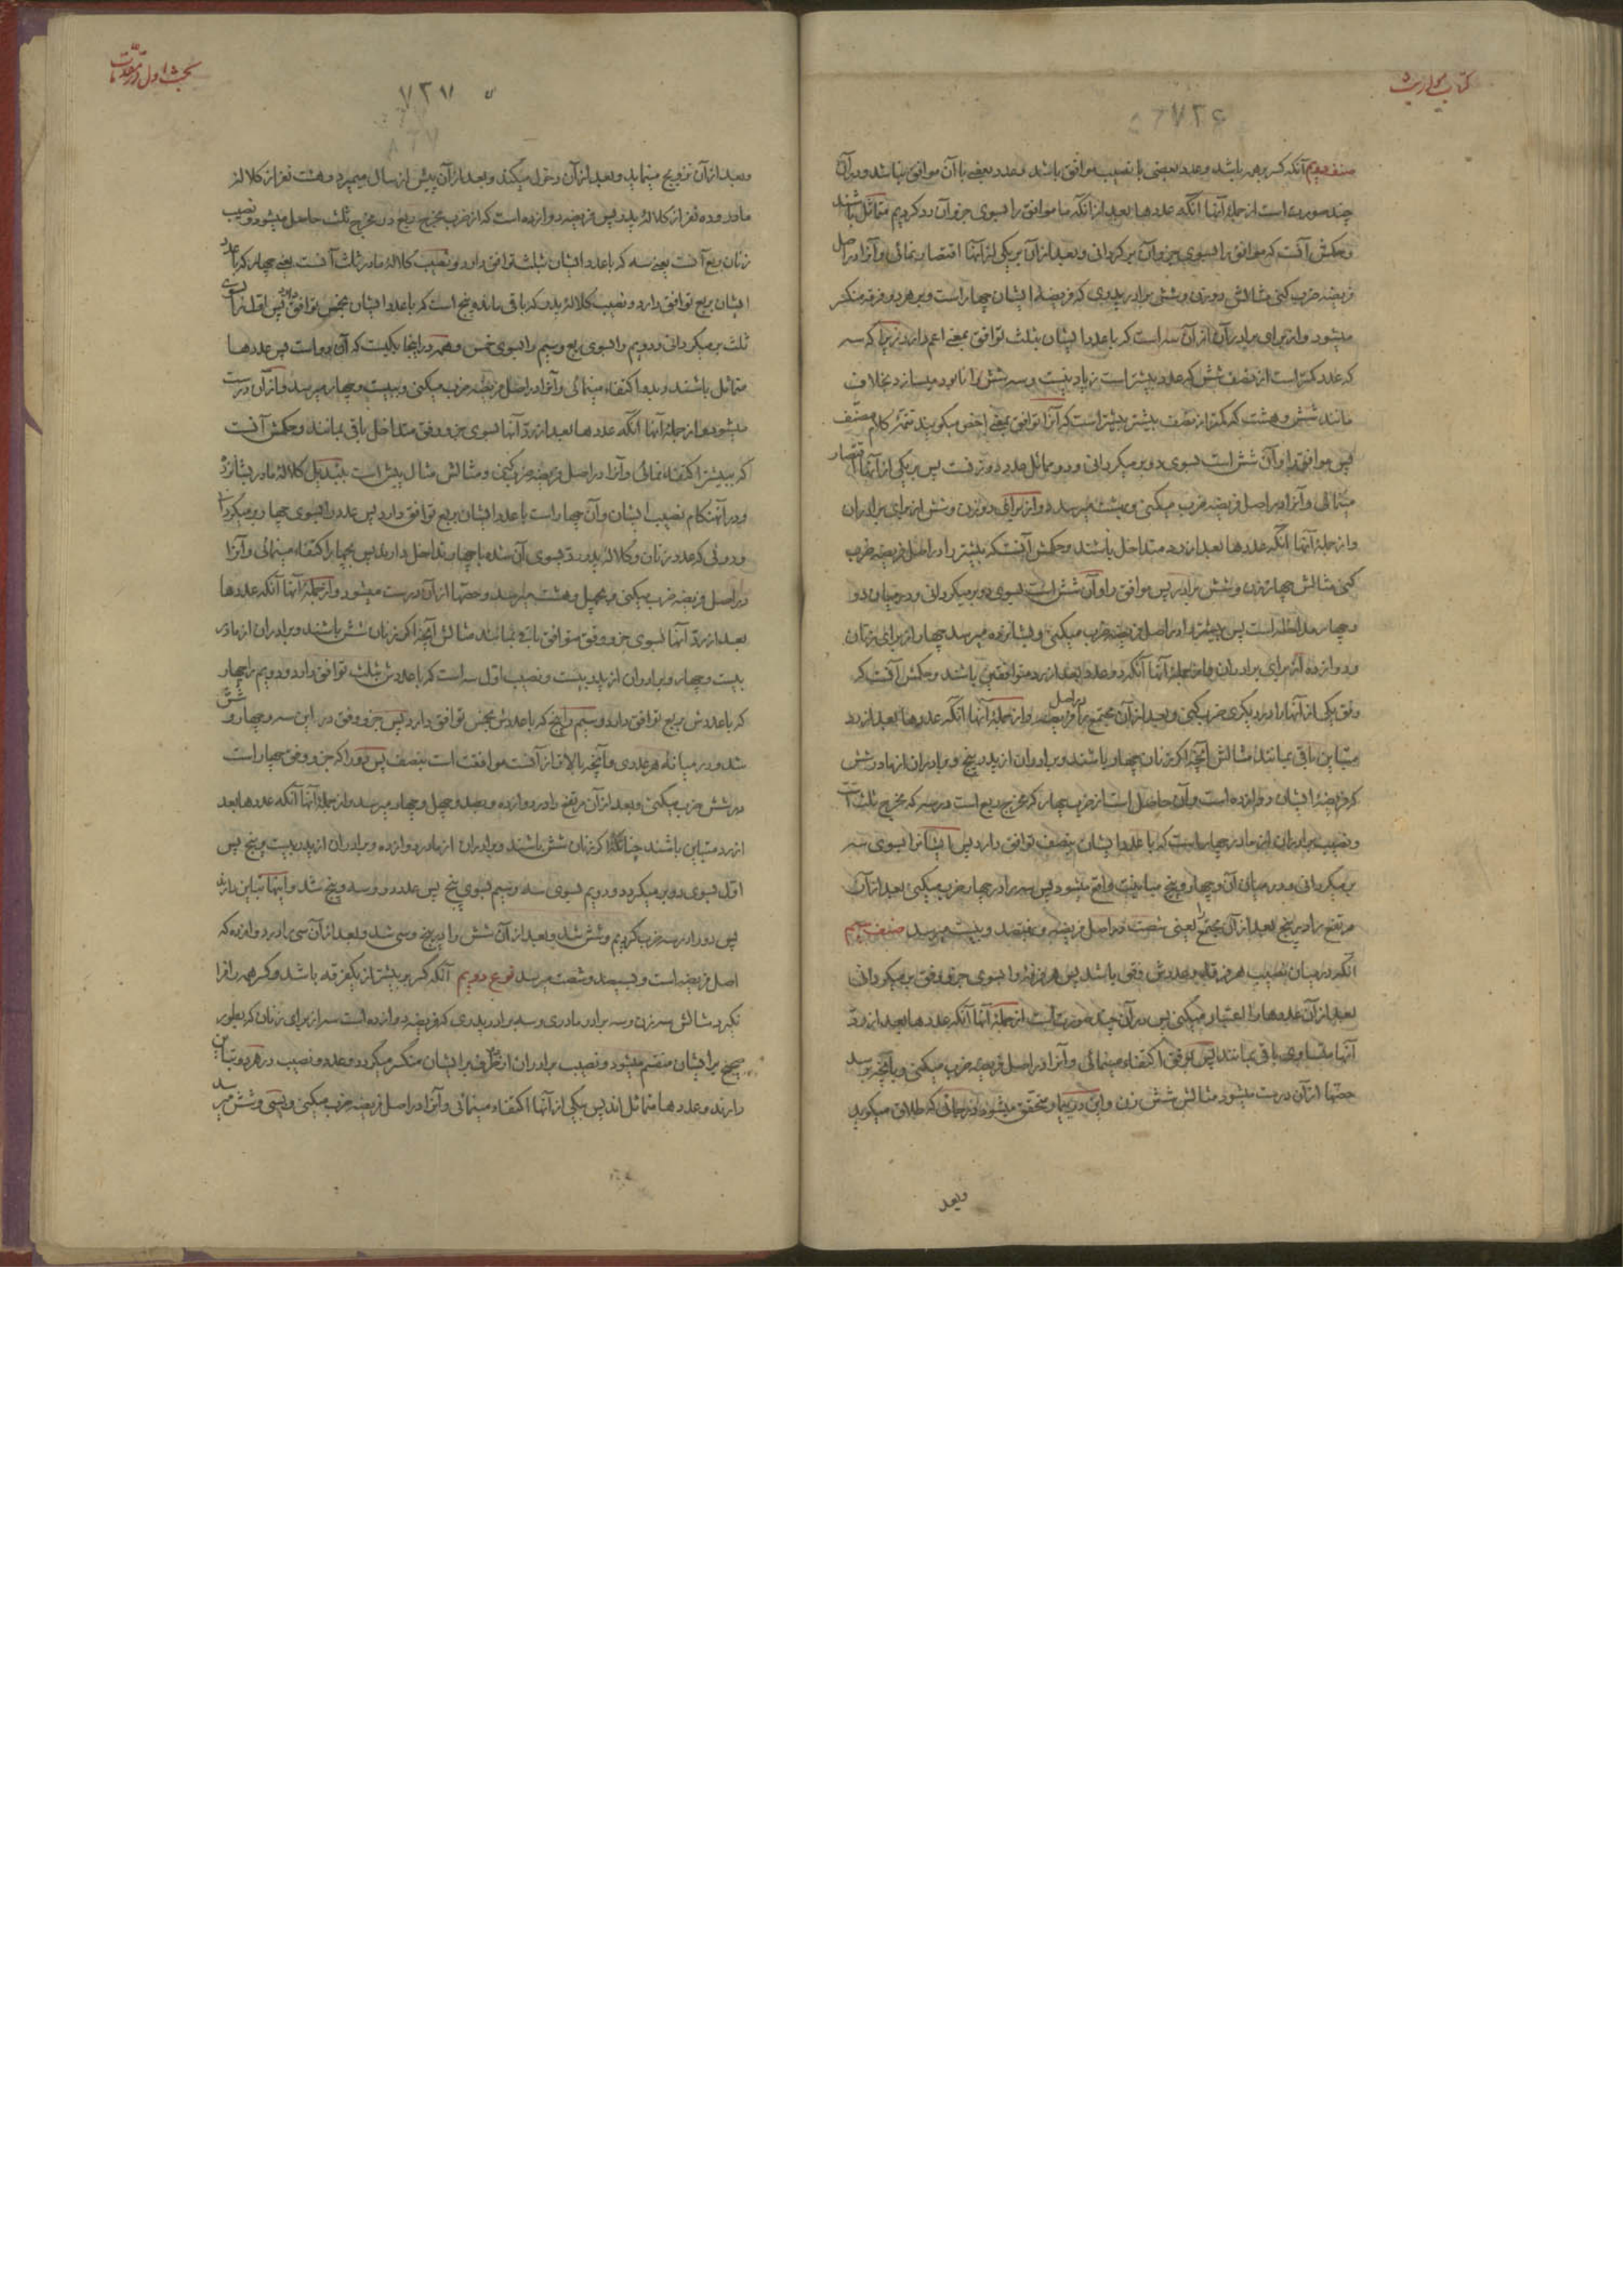 کتاب مواریث
۷۳۶
صنف دویم آنکه کسر بر همه باشد و عدد بعضی با نصیب موافق باشد و عدد بعضی با آن موافق نباشد و در آن
چند صورت است از جملهٔ آنها آنکه عددها بعد از آنکه ما موافق را بسوی جزو آن رد کردیم متماثل باشند
و حکمش آنست که موافق را بسوی جزو آن برگردانی و بعد از آن بر یکی از آنها اقتصار نمائی و آنرا در اصل
فریضه ضرب کنی مثالش دو زن و شش برادر پدری که فریضهٔ ایشان چهار است و بر هر دو فرقه منکسر
میشود و از برای برادران از آن سه است که با عدد ایشان بثلث توافق بمعنی اعم دارد زیرا که سه
که عدد کمتر است از نصف شش که عدد بیشتر است زیاد نیست و سه شش را نابود میسازد بخلاف
مانند شش و هشت که کمتر از نصف بیشتر بیشتر است که آنرا توافق بمعنی اخص میگویند تتمّهٔ کلام مصنّف
پس موافق را و آن شش است بسوی دو بر میگردانی و دو مماثل عدد دو زنست پس بر یکی از آنها اقتصار
مینمائی و آنرا در اصل فریضه ضرب میکنی و بهشت میرسد دو از برای دو زن و شش از برای برادران
و از جملهٔ آنها آنکه عددها بعد از رد متداخل باشند و حکمش آنست که بیشتر را در اصل فریضه ضرب
کنی مثالش چهار زن و شش برادر پس موافق را و آن شش است بسوی دو بر میگردانی و در میان دو
و چهار مداخله است پس بیشتر را در اصل فریضه ضرب میکنی و بشانزده میرسد چهار از برای زنان
و دوازده از برای برادران و از جملهٔ آنها آنکه دو عدد بعد از رد متوافقین باشند و حکمش آنست که
وفق یکی از آنها را در دیگری ضرب کنی و بعد از آن مجتمع را در اصل فریضه و از جملهٔ آنها آنکه عددها بعد از رد
متباین باقی بمانند مثالش آنچه اگر زنان چهار باشند و برادران از پدر پنج و برادران از مادر شش
که فریضهٔ ایشان دوازده است و آن حاصل است از ضرب چهار که مخرج ربع است در سه که مخرج ثلث است
و نصیب برادران از مادر چهار است که با عدد ایشان بنصف توافق دارد پس ایشانرا بسوی سه
بر میگردانی و در میان آن و چهار و پنج مباینت واقع میشود پس سه را در چهار ضرب میکنی بعد از آن
مرتفع را در پنج بعد از آن مجتمع را یعنی شصت در اصل فریضه و بهفتصد و بیست میرسد صنف سیم
آنکه در میان نصیب هر فرقه و عددش وفقی باشد پس هر فرقه را بسوی جزو وفق بر میگردانی
بعد از آن عددها را اعتبار میکنی پس در آن چند صورت است از جملهٔ آنها آنکه عددها بعد از ردّ
آنها متساوی باقی بمانند پس بر وفق اکتفاء مینمائی و آنرا در اصل فریضه ضرب میکنی و بآنچه برسد
حصّها از آن درست میشود مثالش شش زن و این در بیمار متحقق میشود در حالتی که طلاق میگوید
وبعد
بحث اول در مقدّمات
۷۳۷
وبعد از آن تزویج مینماید و بعد از آن دخول میکند و بعد از آن پیش از سال میمیرد و هشت نفر از کلالهٔ
مادر و ده نفر از کلالهٔ پدر پس فریضه دوازده است که از ضرب مخرج ربع در مخرج ثلث حاصل میشود و نصیب
زنان ربع آنست یعنی سه که با عدد ایشان بثلث توافق دارد و نصیب کلالهٔ مادر ثلث آنست یعنی چهار که با عدد
ایشان بربع توافق دارد و نصیب کلالهٔ پدر که باقی مانده پنج است که با عدد ایشان بخمس توافق دارد پس اول را بسوی
ثلث بر میگردانی و دویم را بسوی ربع و سیم را بسوی خمس و همه در اینجا یکیست که آن دو است پس عددها
متماثل باشند و بدو اکتفاء مینمائی و آنرا در اصل فریضه ضرب میکنی و ببیست و چهار میرسد و از آن درست
میشود و از جملهٔ آنها آنکه عددها بعد از ردّ آنها بسوی جزو وفق متداخل باقی بمانند و حکمش آنست
که ببیشتر اکتفاء نمائی و آنرا در اصل فریضه ضرب کنی و مثالش مثال پیش است بتبدیل کلالهٔ مادر بشانزده
و در آنهنکام نصیب ایشان و آن چهار است با عدد ایشان بربع توافق دارد پس عدد را بسوی چهار بر میگردانی
و دوئی که عدد زنان و کلالهٔ پدر رد بسوی آن شده با چهار تداخل دارند پس بچهار اکتفاء مینمائی و آنرا
در اصل فریضه ضرب میکنی و بچهل و هشت میرسد و حصّها از آن درست میشود و از جملهٔ آنها آنکه عددها
بعد از ردّ آنها بسوی جزو وفق متوافق باقی بمانند مثالش آنچه اگر زنان شش باشند و برادران از مادر
بیست و چهار و برادران از پدر بیست و نصیب اوّل سه است که با عددش بثلث توافق دارد و دویم را چهار
که با عددش بربع توافق دارد و سیم را پنج که با عددش بخمس توافق دارد پس جزو وفق در این سه دو و چهار و شش
شد و در میانهٔ هر عددی و آنچه بالاتر از آنست موافقت است بنصف پس دو را که جزو وفق چهار است
در شش ضرب میکنی و بعد از آن مرتفع را در دوازده و بصد و چهل و چهار میرسد و از جملهٔ آنها آنکه عددها بعد
از رد متباین باشند چنانکه اگر زنان شش باشند و برادران از مادر دوازده و برادران از پدر بیست و پنج پس
اوّل بسوی دو بر میگردد و دویم بسوی سه و سیم بسوی پنج پس عدد دو و سه و پنج شد و اینها تباین دارند
پس دو را در سه ضرب کردیم و شش شد و بعد از آن شش را در پنج و سی شد و بعد از آن سی را در دوازده که
اصل فریضه است و بسیصد و شصت میرسد نوع دویم آنکه کسر بر بیشتر از یکفرقه باشد و کسر همه را فرا
نگیرد مثالش سه زن و سه برادر مادری و سه برادر پدری که فریضه دوازده است سه از برای زنان که بطور
صحیح بر ایشان منقسم میشود و نصیب برادران از هر دو طرف بر ایشان منکسر میگردد و عدد و نصیب در هر دو تباین
دارند و عددها متماثل اند پس بیکی از آنها اکتفاء مینمائی و آنرا در اصل فریضه ضرب میکنی و بسی و شش میرسد